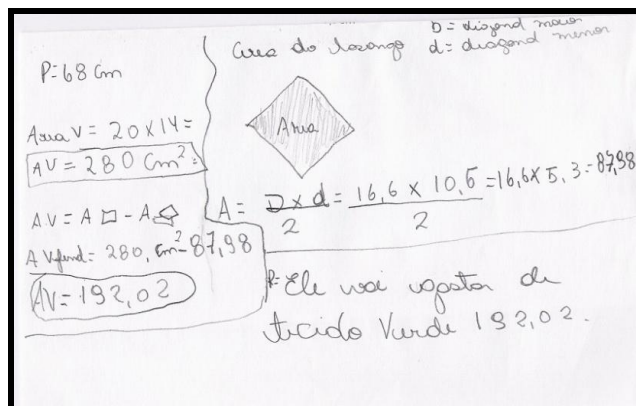 P=68 Cm
Area V = 20 x 14 =
AV = 280 Cm²=
A.V = A □ - A
A Vfend= 280, cm²-87,98
AV=192,02
Area do losango
D= diagonal maior
d= diagonal menor
Area
A= D x d = 16,6 x 10,5 =16,6 x 5,3=87,98
2 2
R= Ele vai gastar de
tecido Verde 192,02.